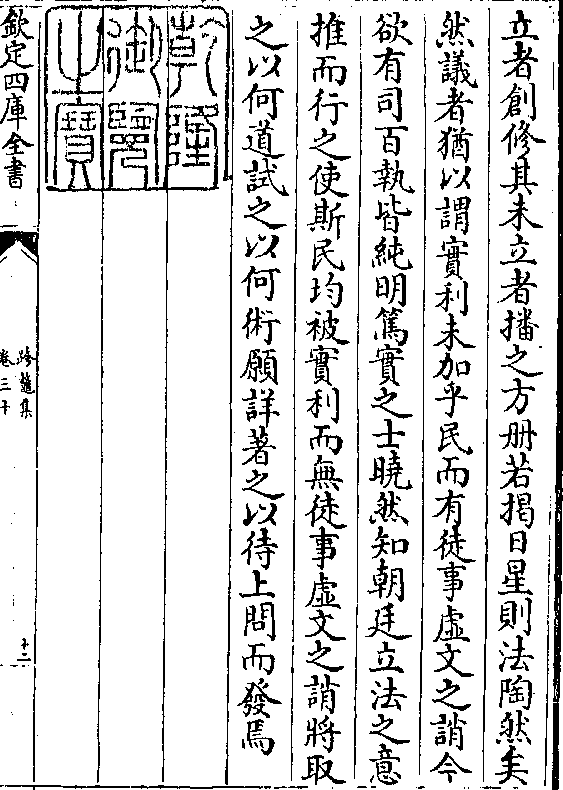 立者創修其未立者播之方册若揭日星則法陶然矣
然議者猶以謂實利未加乎民而有徒事虚文之誚今
欲有司百執皆純明篤實之士曉然知朝廷立法之意
推而行之使斯民均被實利而無徒事虚文之誚將取
之以何道試之以何術願詳著之以待上問而發焉
乾隆
御覽
之寶
欽定四庫全書
跨鼇集
卷三十
十二